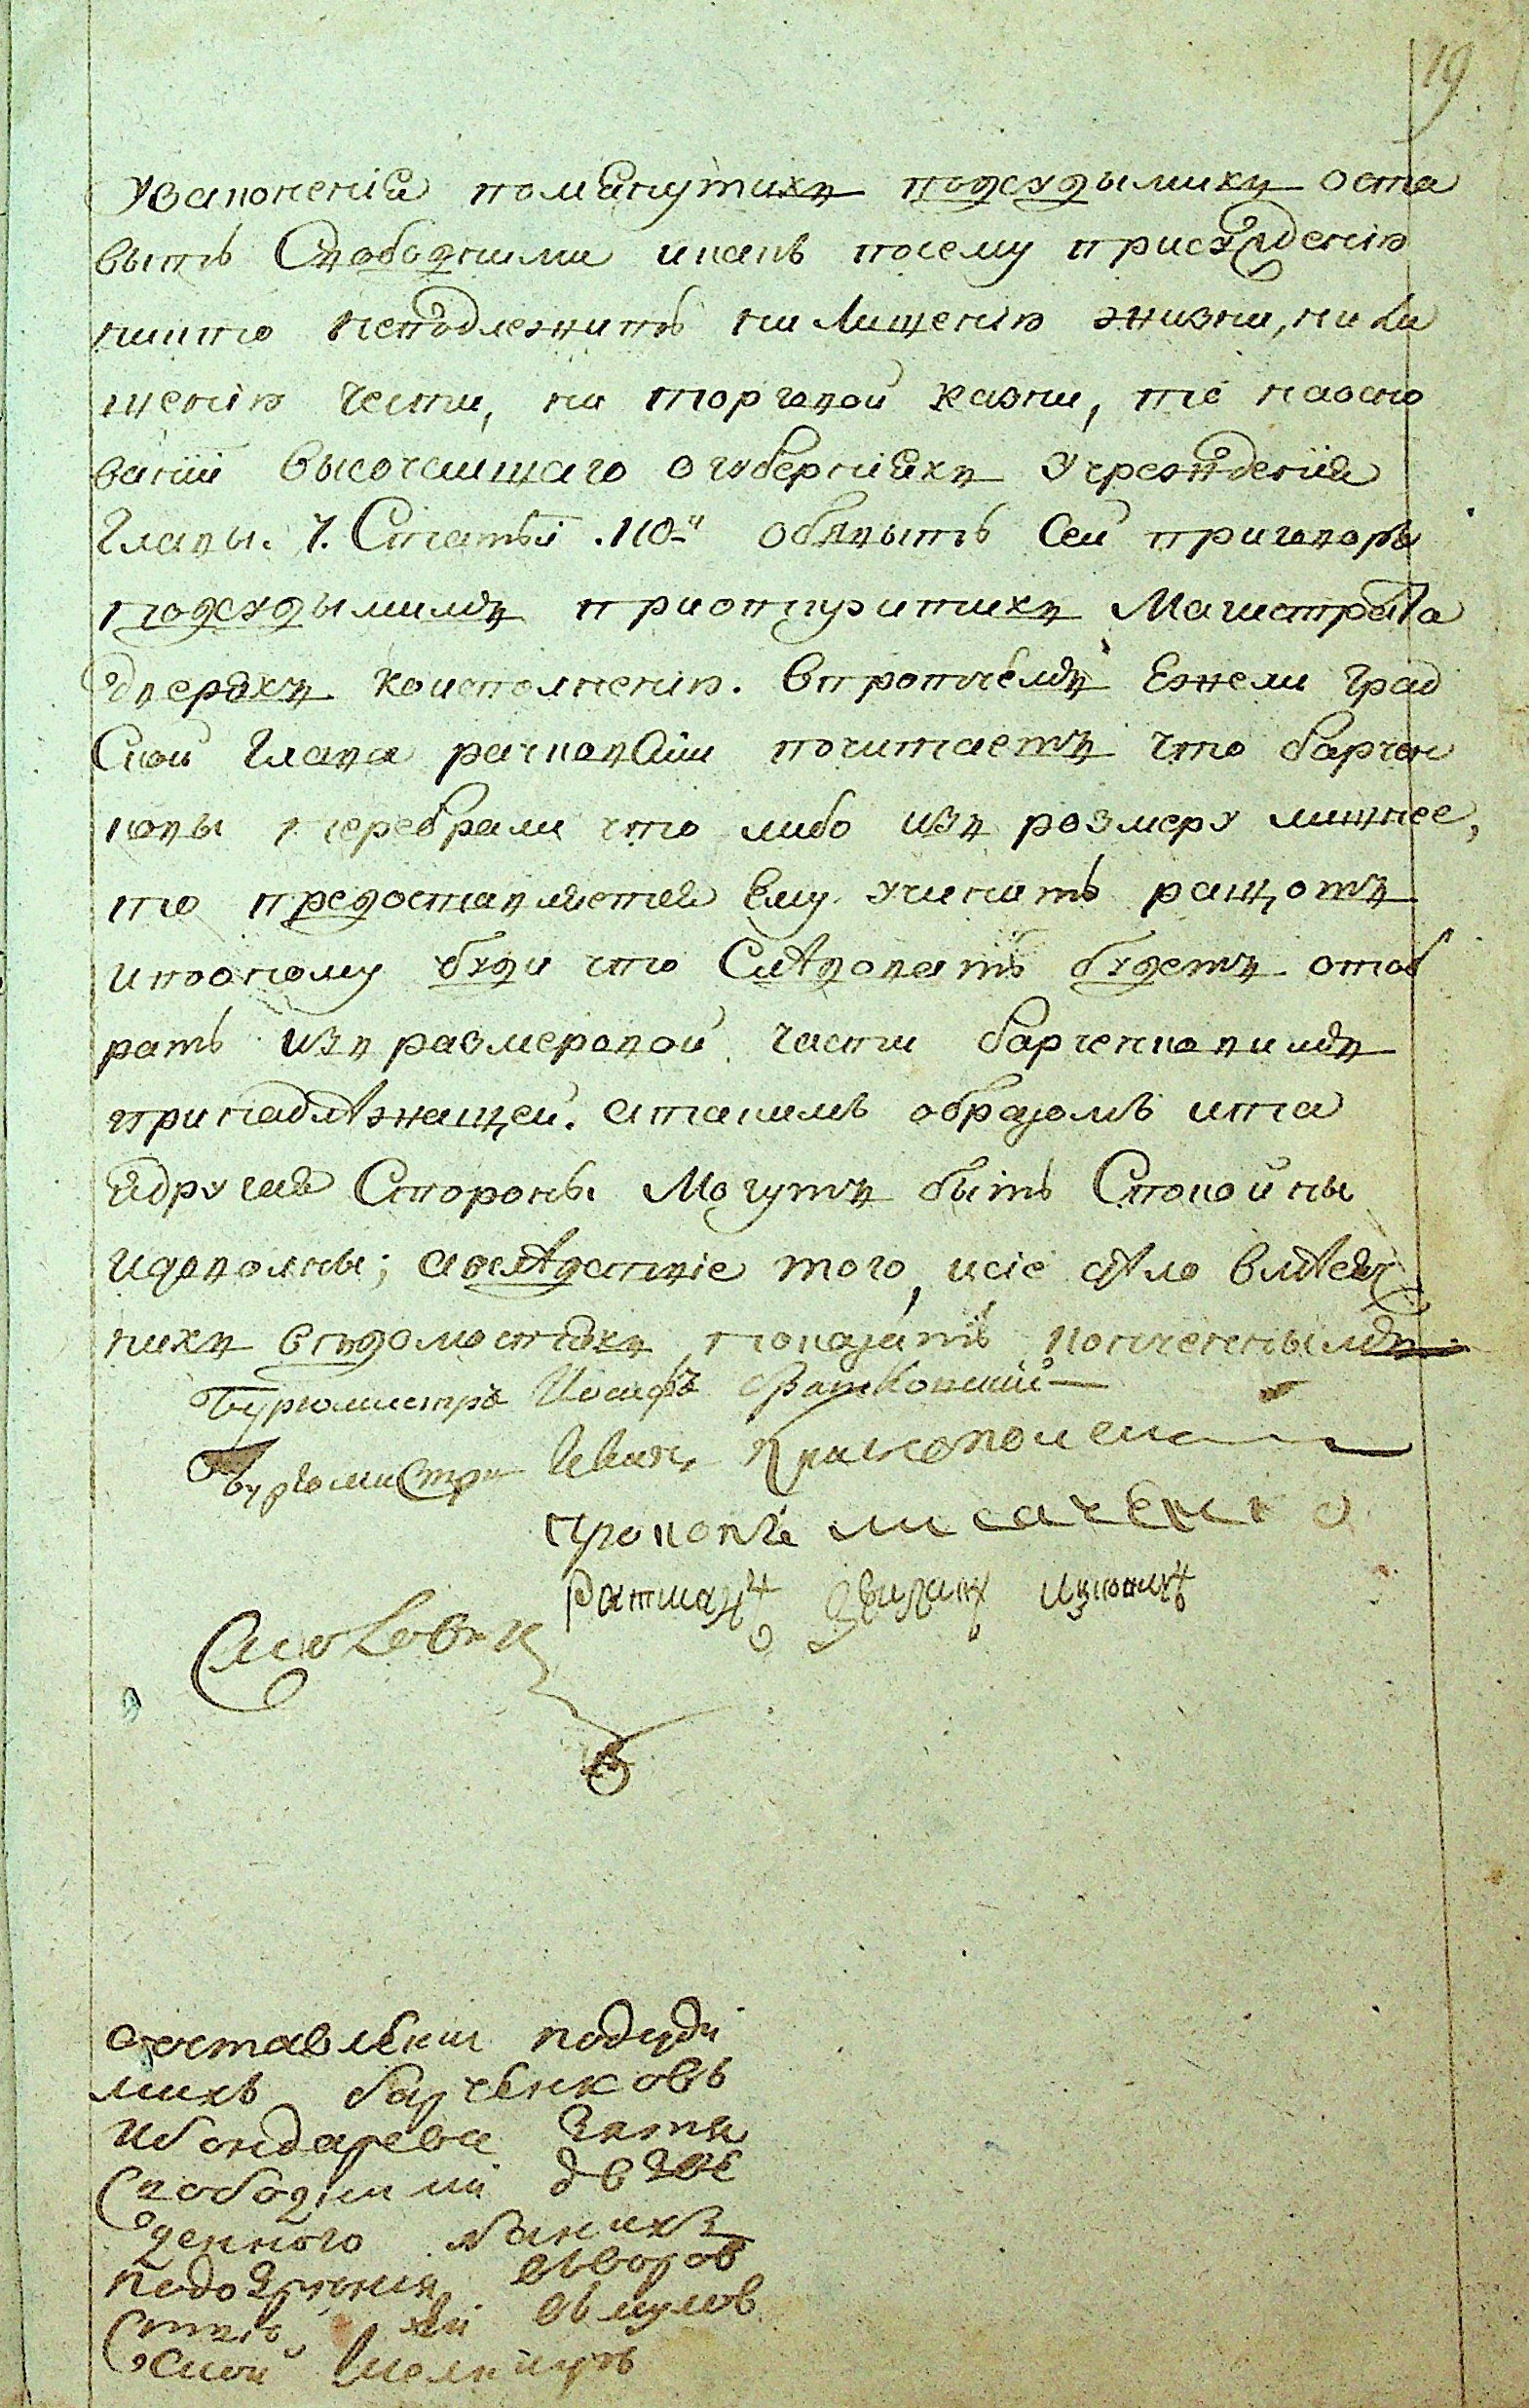 19
узаконения помянутихъ подсудымихъ оста
вить Свободними икакъ посему присуждению
никто неподлежитъ ни лищению жизни, ни ли
щению чести, ни торговой казни, то наосно
вании высочаищаго огубернияхъ учреждения
Главы. 7. Статьи .110-й объявить Сеи приговоръ
подсудымимъ приотпуритихъ Магистрата
дверяхъ коисполнению. впротчемъ Ежели град
Скои Глава рачковский почитаетъ что барчен
ковы перебрали что либо изъ розмеру лишнее,
то предоставляется Ему учинить ращотъ
ипооному буди что Слѣдовать будетъ отоб
рать изъ размеровой части барченковимъ
принадлѣжащей. атакимъ образомъ ита
идругая Стороны Могутъ быть Спокойны
идовольны; авслѣдствие того, исие дѣло влѣгч
нихъ вѣдомостяхъ показать конченнымъ
Бургомистръ Иосифъ
Бургомистръ Иванъ
Прокопъ лисаченко
Ратманъ
оставлении подсуди
михъ барченковъ
ибондарева зятя
Свободними
денного
подозрения